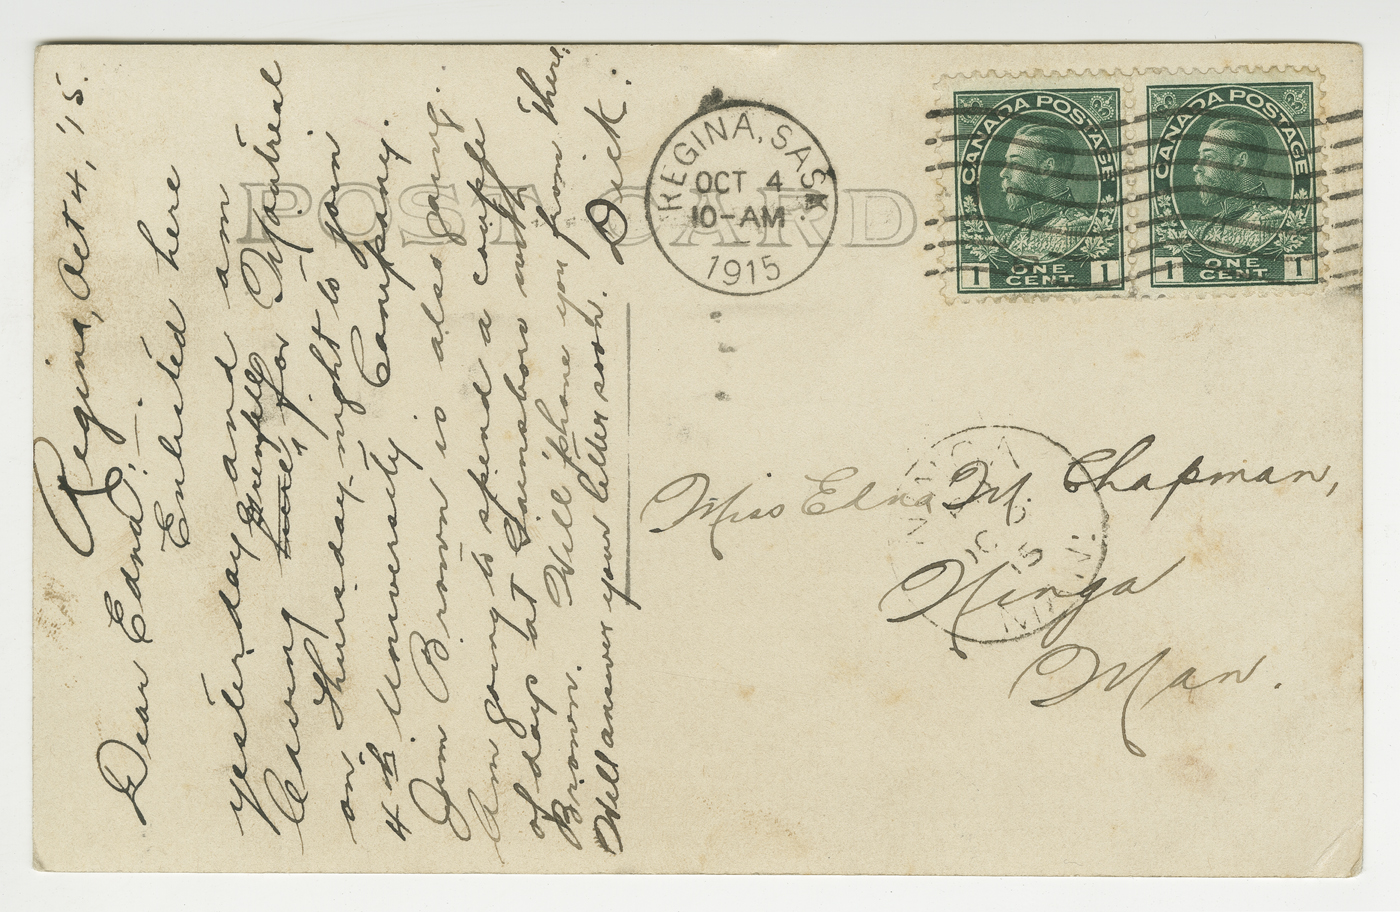 POST CARD
Regina, Oct 4, '15.
Dear Edna:—
Enlisted here
yesterday and am
leaving for Montreal
on Thursday night to join
4th University Company.
Jim Brown is also going.
Am going to spend a couple
of days at Sainsboro with
Brown. Will 'phone you from there.
Will answer your letter soon. Dick.
REGINA, SASK.
OCT 4
10-AM
1915
CANADA POSTAGE
1 ONE CENT 1
CANADA POSTAGE
1 ONE CENT 1
Miss Edna M. Chapman,
Ninga
Man.
NINGA
OC 5
15
MAN.